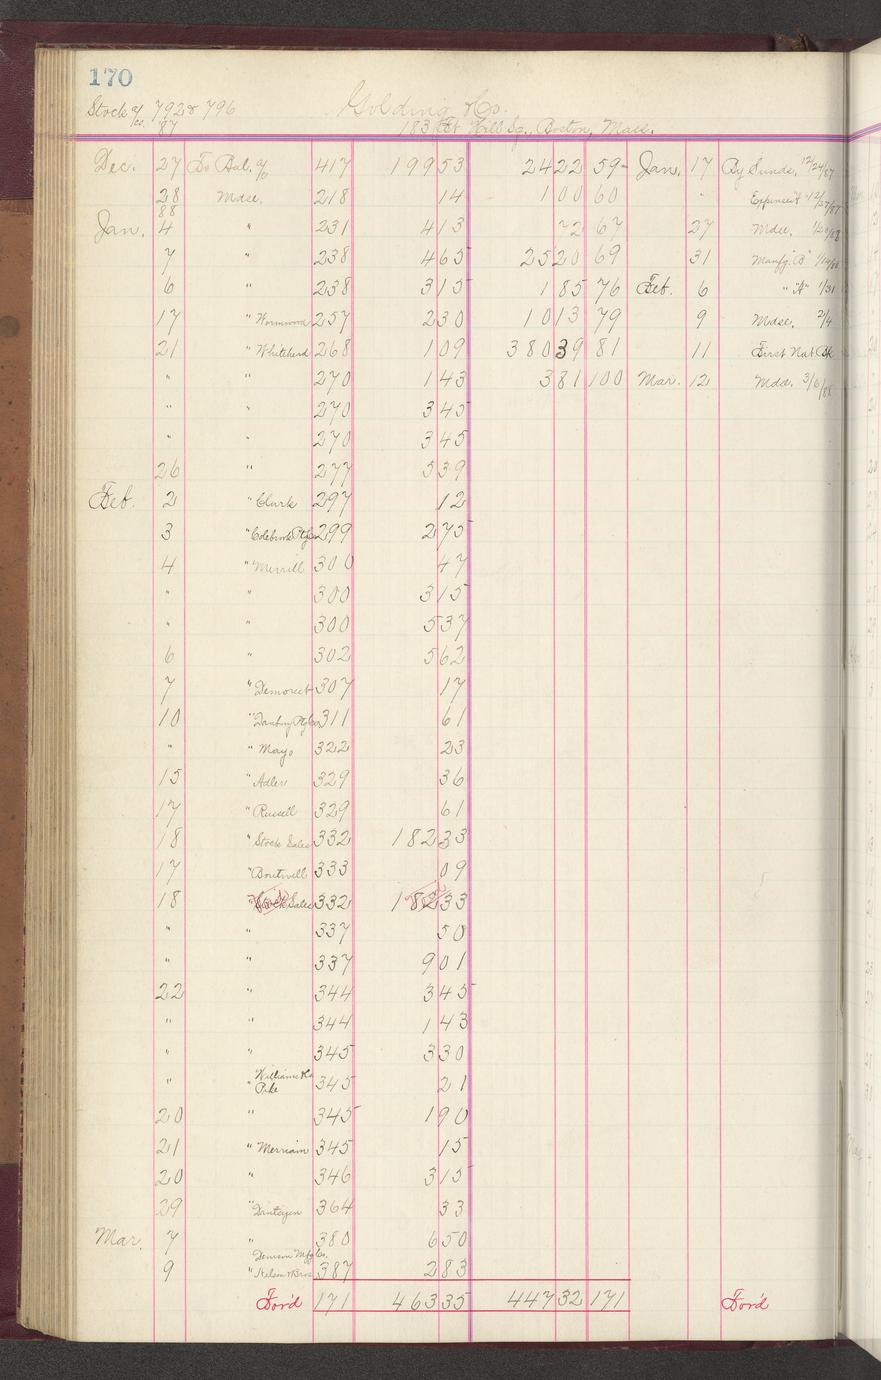 170
Stock a/cs. 792 & 796 Golding & Co.
'87 183 Ft Hill Sq., Boston, Mass.
Dec. 27 To Bal. a/c 417 199 53 24 22 59 Jan. 17 By Sunds. 12/24/87
28 Mdse. 218 14 1 00 60 " Expense "A" 12/27/87
88
Jan. 4 " 231 4 13 72 67 27 Mdse.
7 " 238 4 65 25 20 69 31 Manfg. "B"
6 " 238 3 15 1 85 76 Feb. 6 " "A" 1/31
17 " Wormwood 257 2 30 10 13 79 9 Mdse. 2/4
21 " Whitehead 268 1 09 380 39 81 11 First Nat. Bk
" " 270 1 43 3 81 100 Mar. 12 Mdse. 3/6/88
" " 270 3 45
" " 270 3 45
26 " 277 5 39
Feb. 2 " Clark 297 12
3 " Colebrook Ptg Co 299 2 75
4 " Merrill 300 47
" " 300 3 15
" " 300 5 37
6 " 302 5 62
7 " Demorest 307 17
10 " Danbury Ptg Co 311 61
" " Mayo 322 23
15 " Adler 329 36
17 " Russell 329 61
18 " Stock Sales 332 182 33
17 " Boutwell 333 09
18 " Stock Sales 332 182 33
" " 337 50
" " 337 9 01
22 " 344 3 45
" " 344 1 43
" " 345 3 30
" " Williams & Co Pike 345 21
20 " 345 1 90
21 " Merriam 345 15
20 " 346 3 15
29 " 364 33
Mar. 7 " 380 6 50
Denison Mfg Co.
9 " Nelson & Bros 387 2 83
For'd 171 463 35 447 32 171 For'd